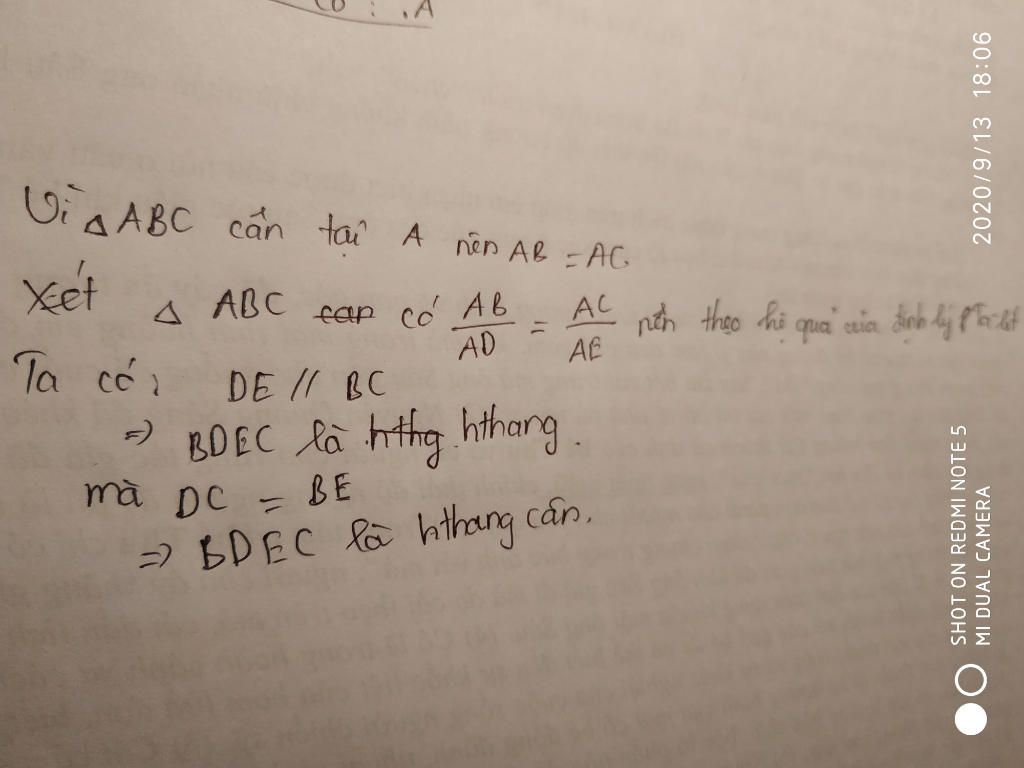 Vì △ ABC cân tại A nên AB = AC
Xét △ ABC can có AB/AD = AC/AE nên theo hệ quả của định lý Ta-lét
Ta có: DE // BC
=> BDEC là hthg hthang.
mà DC = BE
=> BDEC là hthang cân.
SHOT ON REDMI NOTE 5
MI DUAL CAMERA
2020/9/13 18:06